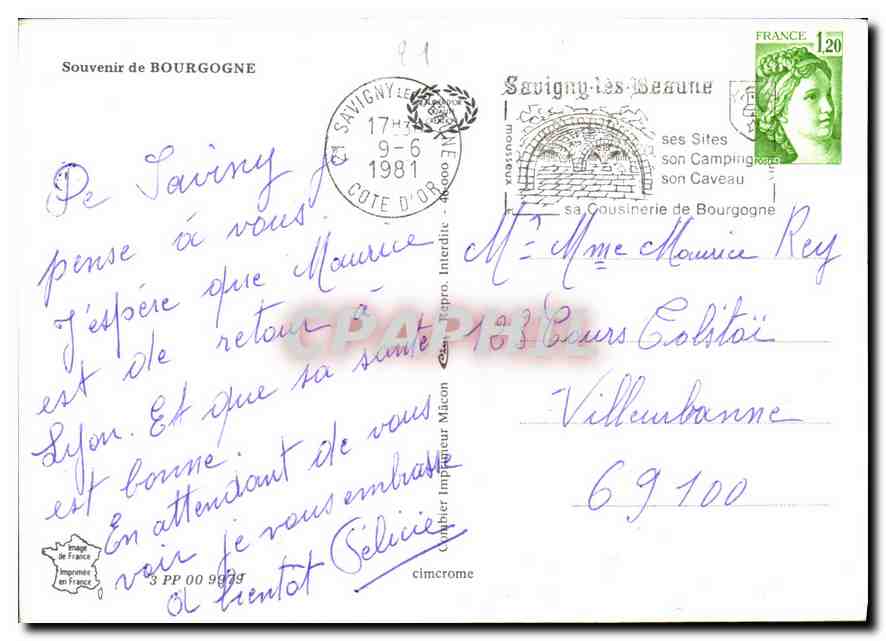 21
Souvenir de BOURGOGNE
SAVIGNY LES
17H30
9-6
1981
COTE D'OR
Savigny-lès-Beaune
mousseux
ses Sites
son Camping
son Caveau
sa Cousinerie de Bourgogne
FRANCE 1,20
De Saviny je
pense à vous.
J'espére que Maurice
est de retour à
Lyon. Et que sa santé
est bonne.
En attendant de vous
voir je vous embrasse
a bientôt Félicie
Mr Mme Maurice Rey
183 Cours Tolstoï
Villeurbanne
69100
Combier Imprimeur Mâcon
Repro. Interdite
CPAPHIL
Image
de France
Imprimée
en France
3 PP 00 9979
cimcrome